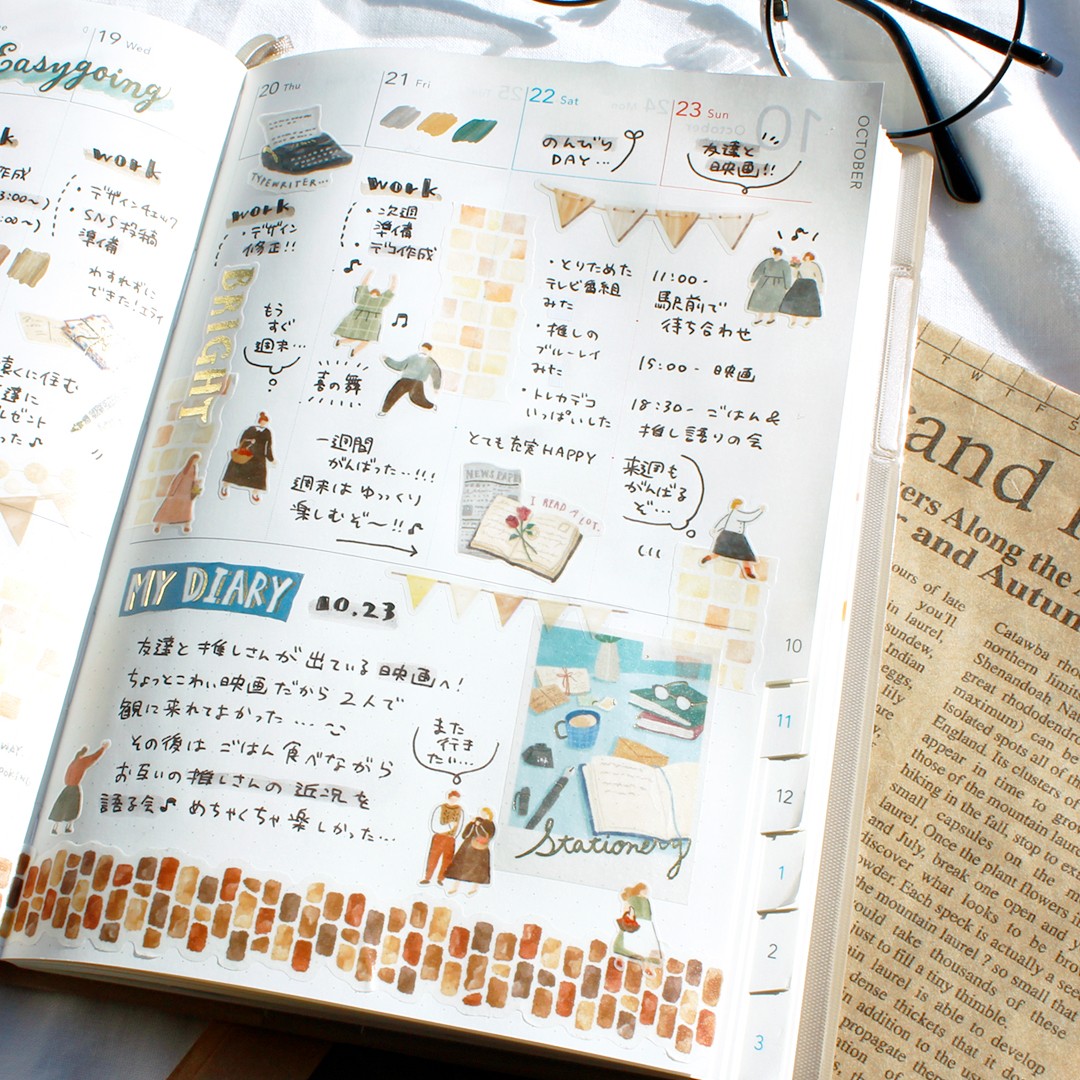 19 Wed
Easygoing
work
・デザインチェック
・SNS投稿
準備
わすれずに
できた!エライ
遠くに住む
20 Thu
TYPEWRITER...
work
・デザイン
修正!!
BRIGHT
もう
すぐ
週末…
21 Fri
work
・次週
準備
・デコ作成
喜の舞
一週間
がんばった…!!!
週末は ゆっくり
楽しむぞ〜!!♪
22 Sat
のんびり
DAY…
・とりためた
テレビ番組
みた
・推しの
ブルーレイ
みた
・トレカデコ
いっぱいした
とても充実HAPPY
NEWSPAPER
I READ A LOT.
23 Sun
友達と
映画!!
11:00-
駅前で
待ち合わせ
15:00- 映画
18:30- ごはん&
推し語りの会
来週も
がんばる
ぞ…
10
October
OCTOBER
MY DIARY
10.23
友達と推しさんが出ている映画へ!
ちょっとこわい映画だから2人で
観に来れてよかった…
その後は ごはん食べながら
お互いの推しさんの近況を
語る会♪ めちゃくちゃ楽しかった…
また
行き
たい…
Stationery
10
11
12
1
2
3
T W T F S
and
vers Along the
r and Autumn
ours of late
you'll
in laurel,
sundew,
Indian
eggs,
lily
are
Catawba rhod
northern limit
Shenandoah Nati
great rhododendr
maximum) can be
isolated spots all of th
England. Its clusters of
appear in time to grou
those of the mountain laure
hiking in the fall, stop to exa
small capsules on the m
laurel. Once the plant flowers in
and July, break one open and y
discover what looks to be brow
owder. Each speck is actually a seed
he mountain laurel ? so small that
ould take thousands of these
just to fill a tiny thimble.
in laurel is able to develop
dense thickets that it do
n addition to the usu
propagate them